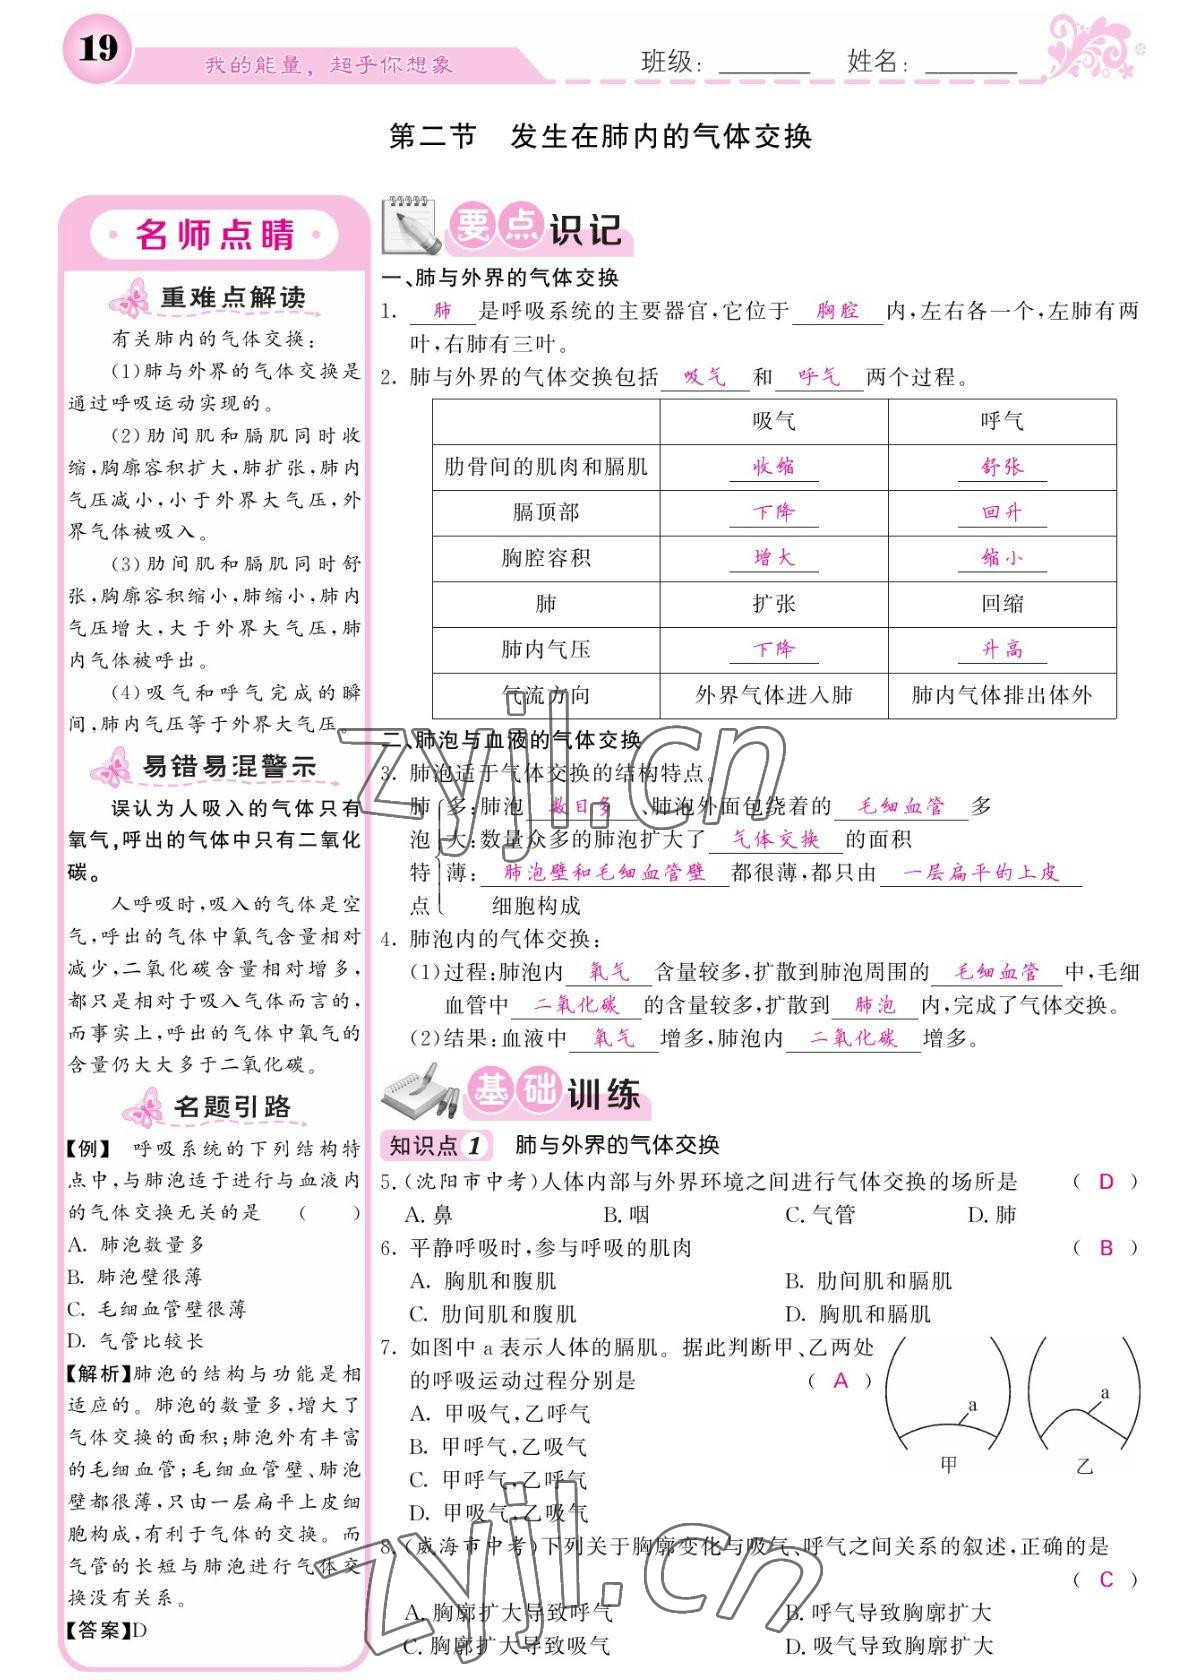 19
我的能量，超乎你想象
班级：________ 姓名：________
第二节 发生在肺内的气体交换
·名师点睛·
重难点解读
有关肺内的气体交换：
(1)肺与外界的气体交换是
通过呼吸运动实现的。
(2)肋间肌和膈肌同时收
缩,胸廓容积扩大,肺扩张,肺内
气压减小,小于外界大气压,外
界气体被吸入。
(3)肋间肌和膈肌同时舒
张,胸廓容积缩小,肺缩小,肺内
气压增大,大于外界大气压,肺
内气体被呼出。
(4)吸气和呼气完成的瞬
间,肺内气压等于外界大气压。
易错易混警示
误认为人吸入的气体只有
氧气,呼出的气体中只有二氧化
碳。
人呼吸时,吸入的气体是空
气,呼出的气体中氧气含量相对
减少,二氧化碳含量相对增多,
都只是相对于吸入气体而言的,
而事实上,呼出的气体中氧气的
含量仍大大多于二氧化碳。
名题引路
【例】 呼吸系统的下列结构特
点中,与肺泡适于进行与血液内
的气体交换无关的是 （ ）
A. 肺泡数量多
B. 肺泡壁很薄
C. 毛细血管壁很薄
D. 气管比较长
【解析】肺泡的结构与功能是相
适应的。肺泡的数量多,增大了
气体交换的面积;肺泡外有丰富
的毛细血管;毛细血管壁、肺泡
壁都很薄,只由一层扁平上皮细
胞构成,有利于气体的交换。而
气管的长短与肺泡进行气体交
换没有关系。
【答案】D
要点识记
一、肺与外界的气体交换
1. 肺 是呼吸系统的主要器官,它位于 胸腔 内,左右各一个,左肺有两
叶,右肺有三叶。
2. 肺与外界的气体交换包括 吸气 和 呼气 两个过程。
吸气 呼气
肋骨间的肌肉和膈肌 收缩 舒张
膈顶部 下降 回升
胸腔容积 增大 缩小
肺 扩张 回缩
肺内气压 下降 升高
气流方向 外界气体进入肺 肺内气体排出体外
二、肺泡与血液的气体交换
3. 肺泡适于气体交换的结构特点。
肺 多:肺泡 数目多 、肺泡外面包绕着的 毛细血管 多
泡 大:数量众多的肺泡扩大了 气体交换 的面积
特 薄: 肺泡壁和毛细血管壁 都很薄,都只由 一层扁平的上皮
点 细胞构成
4. 肺泡内的气体交换:
(1)过程:肺泡内 氧气 含量较多,扩散到肺泡周围的 毛细血管 中,毛细
血管中 二氧化碳 的含量较多,扩散到 肺泡 内,完成了气体交换。
(2)结果:血液中 氧气 增多,肺泡内 二氧化碳 增多。
基础训练
知识点1 肺与外界的气体交换
5.(沈阳市中考)人体内部与外界环境之间进行气体交换的场所是 （ D ）
A. 鼻 B. 咽 C. 气管 D. 肺
6. 平静呼吸时,参与呼吸的肌肉 （ B ）
A. 胸肌和腹肌 B. 肋间肌和膈肌
C. 肋间肌和腹肌 D. 胸肌和膈肌
7. 如图中 a 表示人体的膈肌。据此判断甲、乙两处
的呼吸运动过程分别是 （ A ）
A. 甲吸气,乙呼气
B. 甲呼气,乙吸气
C. 甲呼气,乙呼气
D. 甲吸气,乙吸气
a a
甲 乙
8.(威海市中考)下列关于胸廓变化与吸气、呼气之间关系的叙述,正确的是
（ C ）
A. 胸廓扩大导致呼气 B. 呼气导致胸廓扩大
C. 胸廓扩大导致吸气 D. 吸气导致胸廓扩大
zyjl.cn
zyjl.cn